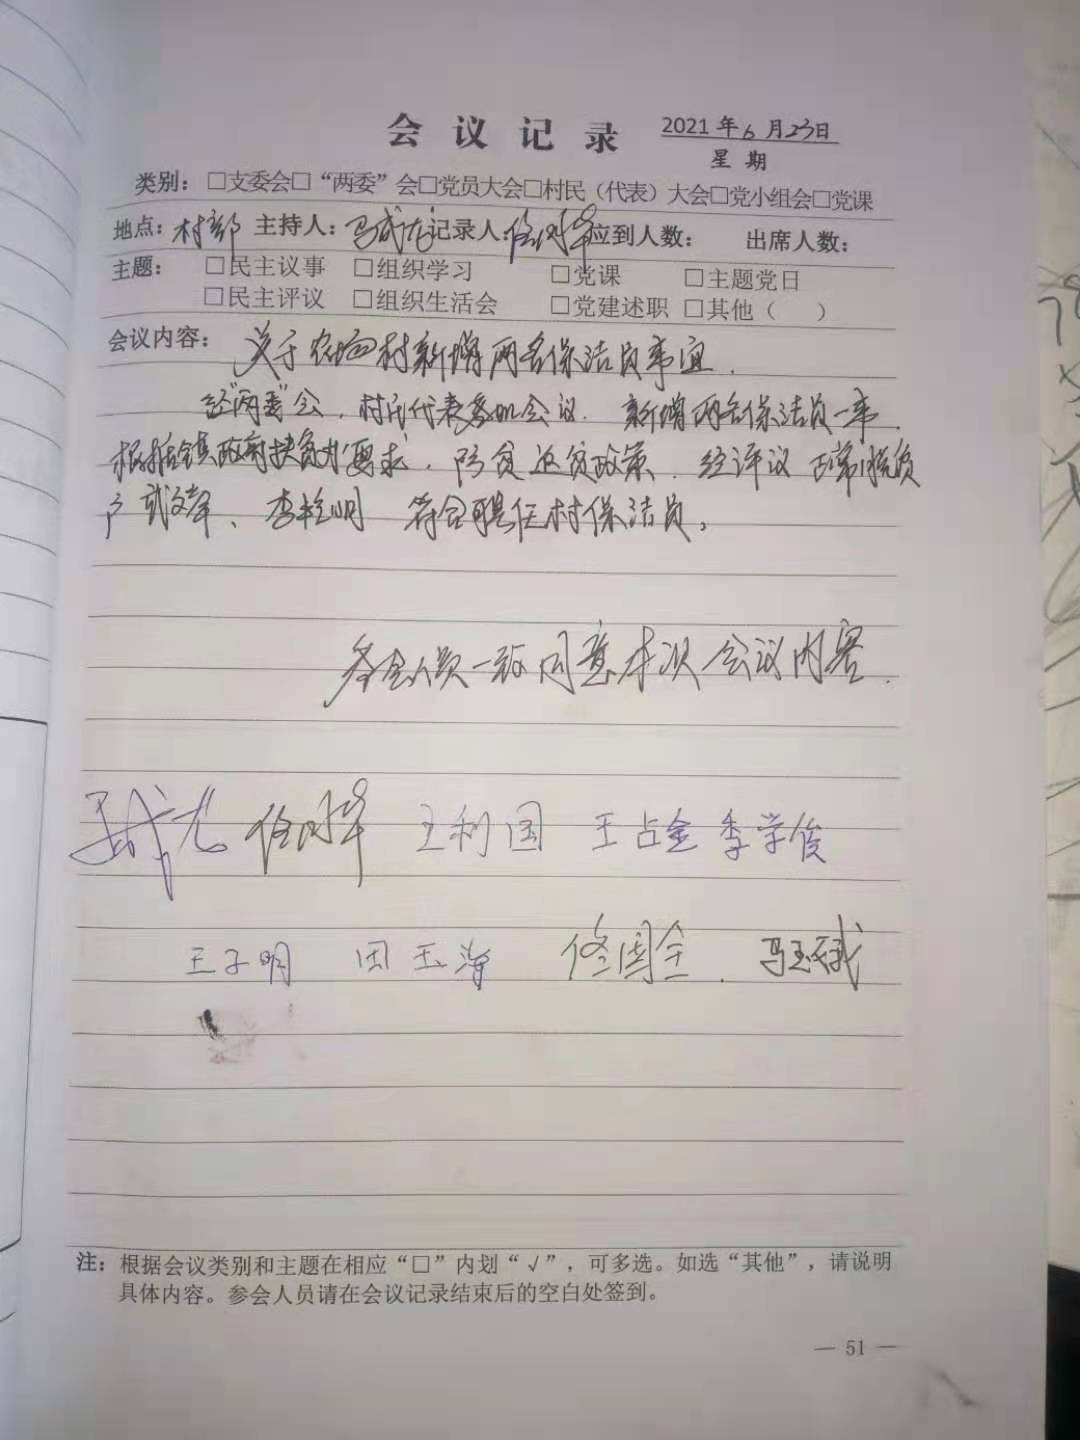 会议记录 2021年6月23日
星期
类别：□支委会□“两委”会□党员大会□村民（代表）大会□党小组会□党课
地点：村部 主持人：马成龙记录人：佟刚华应到人数： 出席人数：
主题： □民主议事 □组织学习 □党课 □主题党日
□民主评议 □组织生活会 □党建述职 □其他（ ）
会议内容： 关于农场村新增两名保洁员事宜.
经“两委”会，村民代表参加会议. 新增两名保洁员一事.
根据镇政府扶贫办要求，防贫返贫政策. 经评议 脱贫
户 武文军、李桂明 符合聘任村保洁员。
参会人员一致同意本次会议内容.
马成龙 佟刚华 王利国 王占金 李学俊
王子明 田玉海 佟国全. 马玉斌
注：根据会议类别和主题在相应“□”内划“√”，可多选。如选“其他”，请说明
具体内容。参会人员请在会议记录结束后的空白处签到。
— 51 —